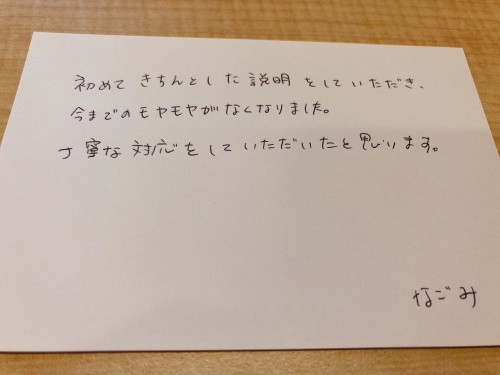 初めて きちんとした説明をしていただき、
今までのモヤモヤがなくなりました。
丁寧な対応をしていただいたと思います。
なごみ